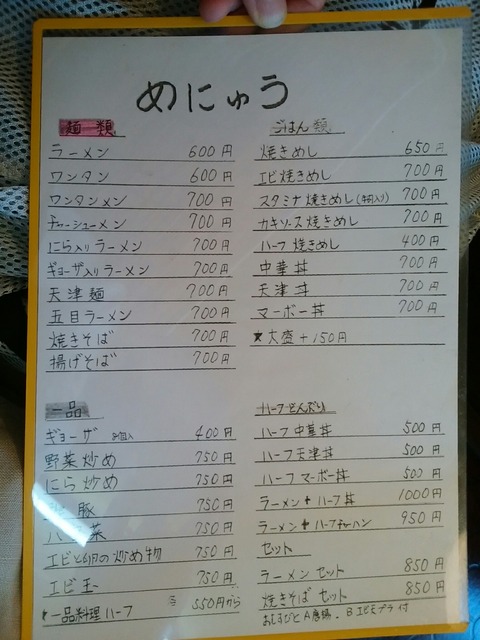 めにゅう
麺類
ラーメン 600円
ワンタン 600円
ワンタンメン 700円
チャーシューメン 700円
にら入りラーメン 700円
ギョーザ入りラーメン 700円
天津麺 700円
五目ラーメン 700円
焼きそば 700円
揚げそば 700円
ごはん類
焼きめし 650円
エビ焼きめし 700円
スタミナ焼きめし 700円
カキソース焼きめし 700円
ハーフ焼きめし 400円
中華丼 700円
天津丼 700円
マーボー丼 700円
★大盛+150円
一品
ギョーザ 8個入 400円
野菜炒め 750円
にら炒め 750円
豚 750円
菜 750円
エビと卵の炒め物 750円
エビ玉 750円
*一品料理ハーフ 550円から
ハーフどんぶり
ハーフ中華丼 500円
ハーフ天津丼 500円
ハーフマーボー丼 500円
ラーメン+ハーフ丼 1000円
ラーメン+ハーフチャーハン 950円
セット
ラーメンセット 850円
焼きそばセット 850円
おむすびと A唐揚. Bエビフライ付